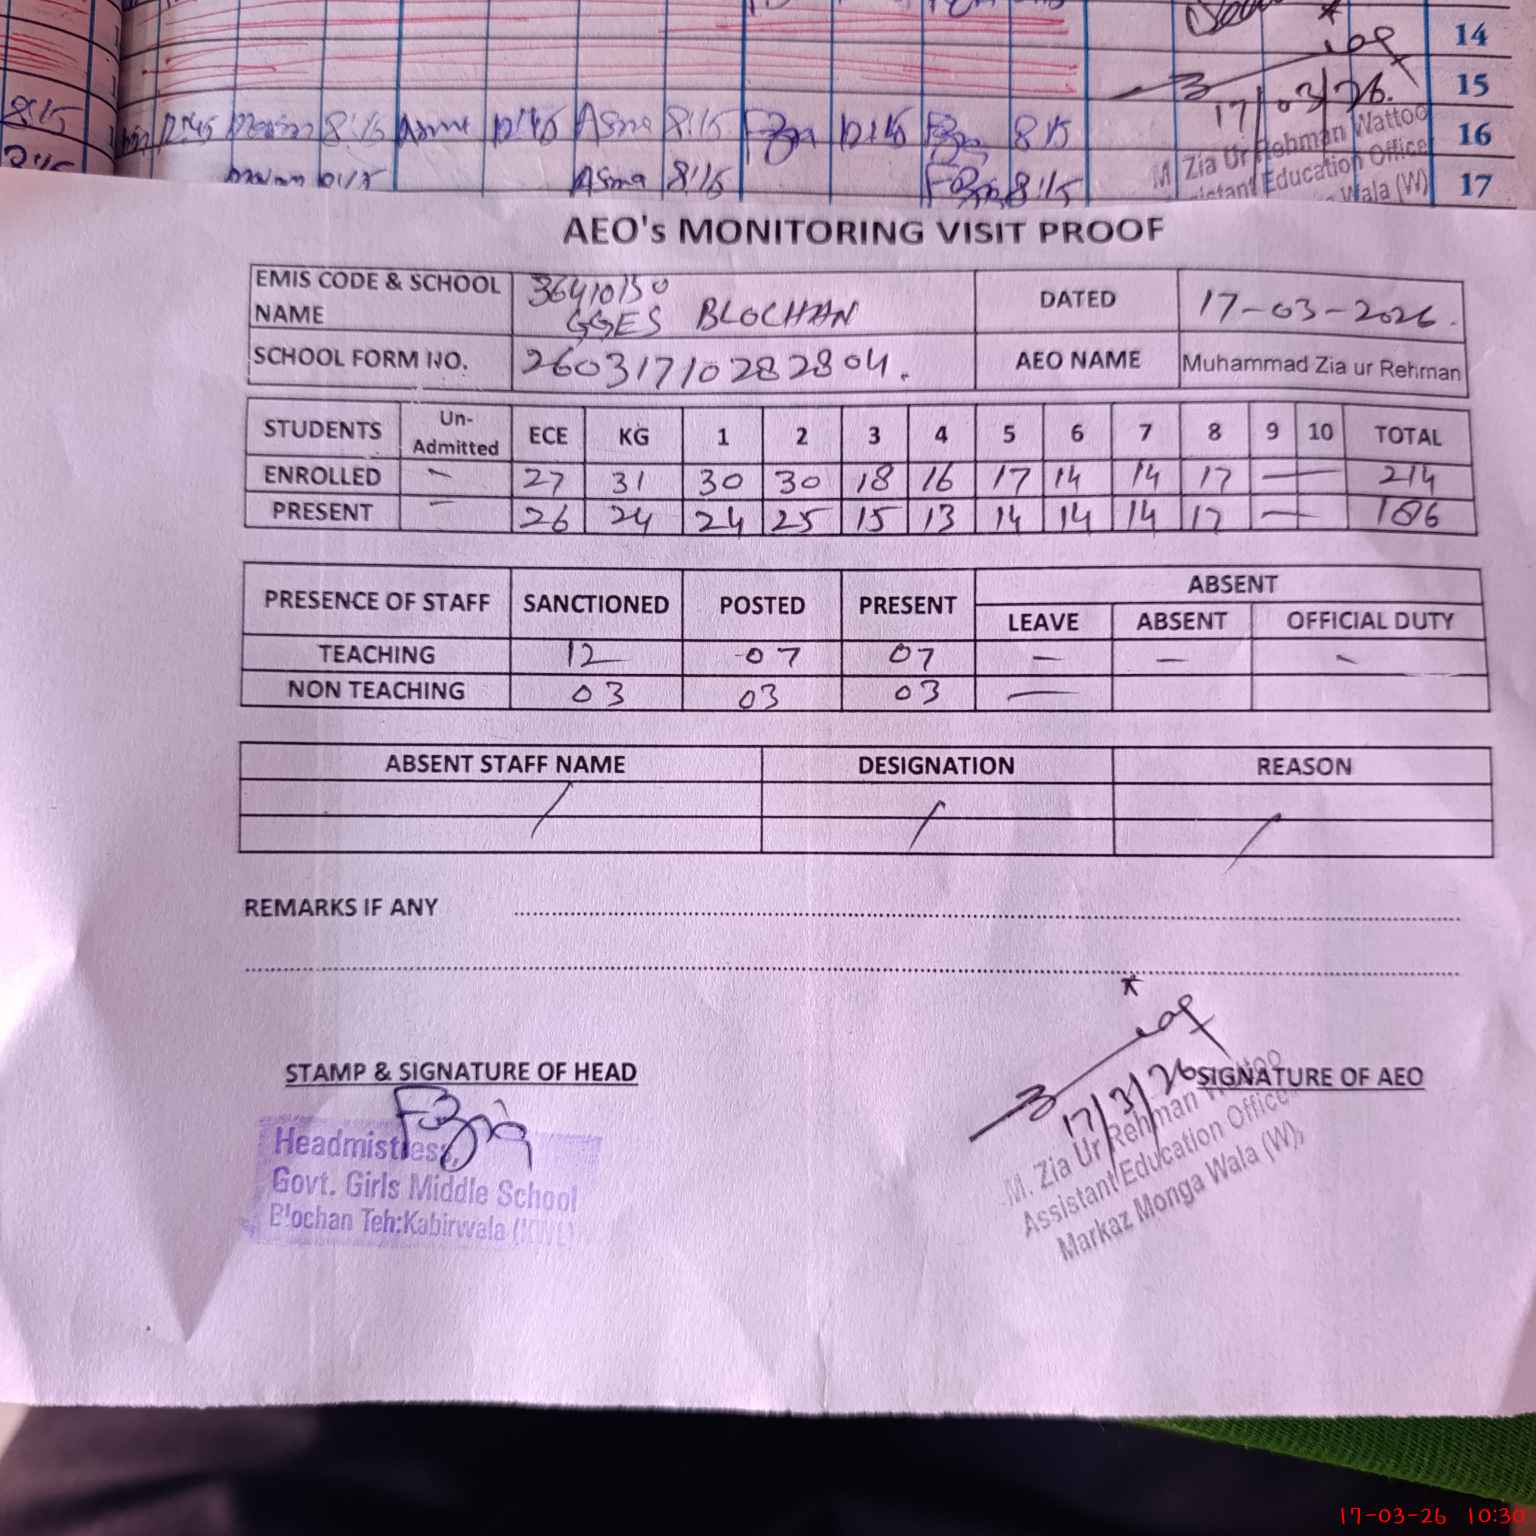 14
15
17/03/26.
8:15 12:45 8:15 Asma 12:45 Asma 8:15 12:45 8:15 16
M Zia Ur Rehman Wattoo
Education Office
Asma 8:15 8:15 Wala (W) 17
AEO's MONITORING VISIT PROOF
EMIS CODE & SCHOOL NAME 36410150 GGES BLOCHAN DATED 17-03-2026.
SCHOOL FORM NO. 26031710282804. AEO NAME Muhammad Zia ur Rehman
STUDENTS Un-Admitted ECE KG 1 2 3 4 5 6 7 8 9 10 TOTAL
ENROLLED – 27 31 30 30 18 16 17 14 14 17 — 214
PRESENT – 26 24 24 25 15 13 14 14 14 17 — 186
PRESENCE OF STAFF SANCTIONED POSTED PRESENT ABSENT
LEAVE ABSENT OFFICIAL DUTY
TEACHING 12 07 07 – – –
NON TEACHING 03 03 03 —
ABSENT STAFF NAME DESIGNATION REASON
/ / /
REMARKS IF ANY
STAMP & SIGNATURE OF HEAD
SIGNATURE OF AEO
17/3/26
Headmistress,
Govt. Girls Middle School
Blochan Teh:Kabirwala (KWL)
M. Zia Ur Rehman Wattoo
Assistant Education Office
Markaz Monga Wala (W),
17-03-26 10:30